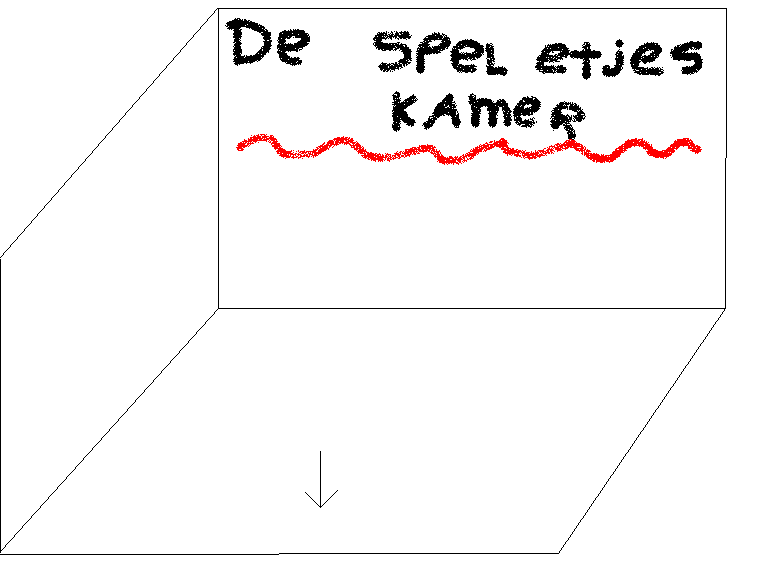 De SPeL etjes
KAmeR